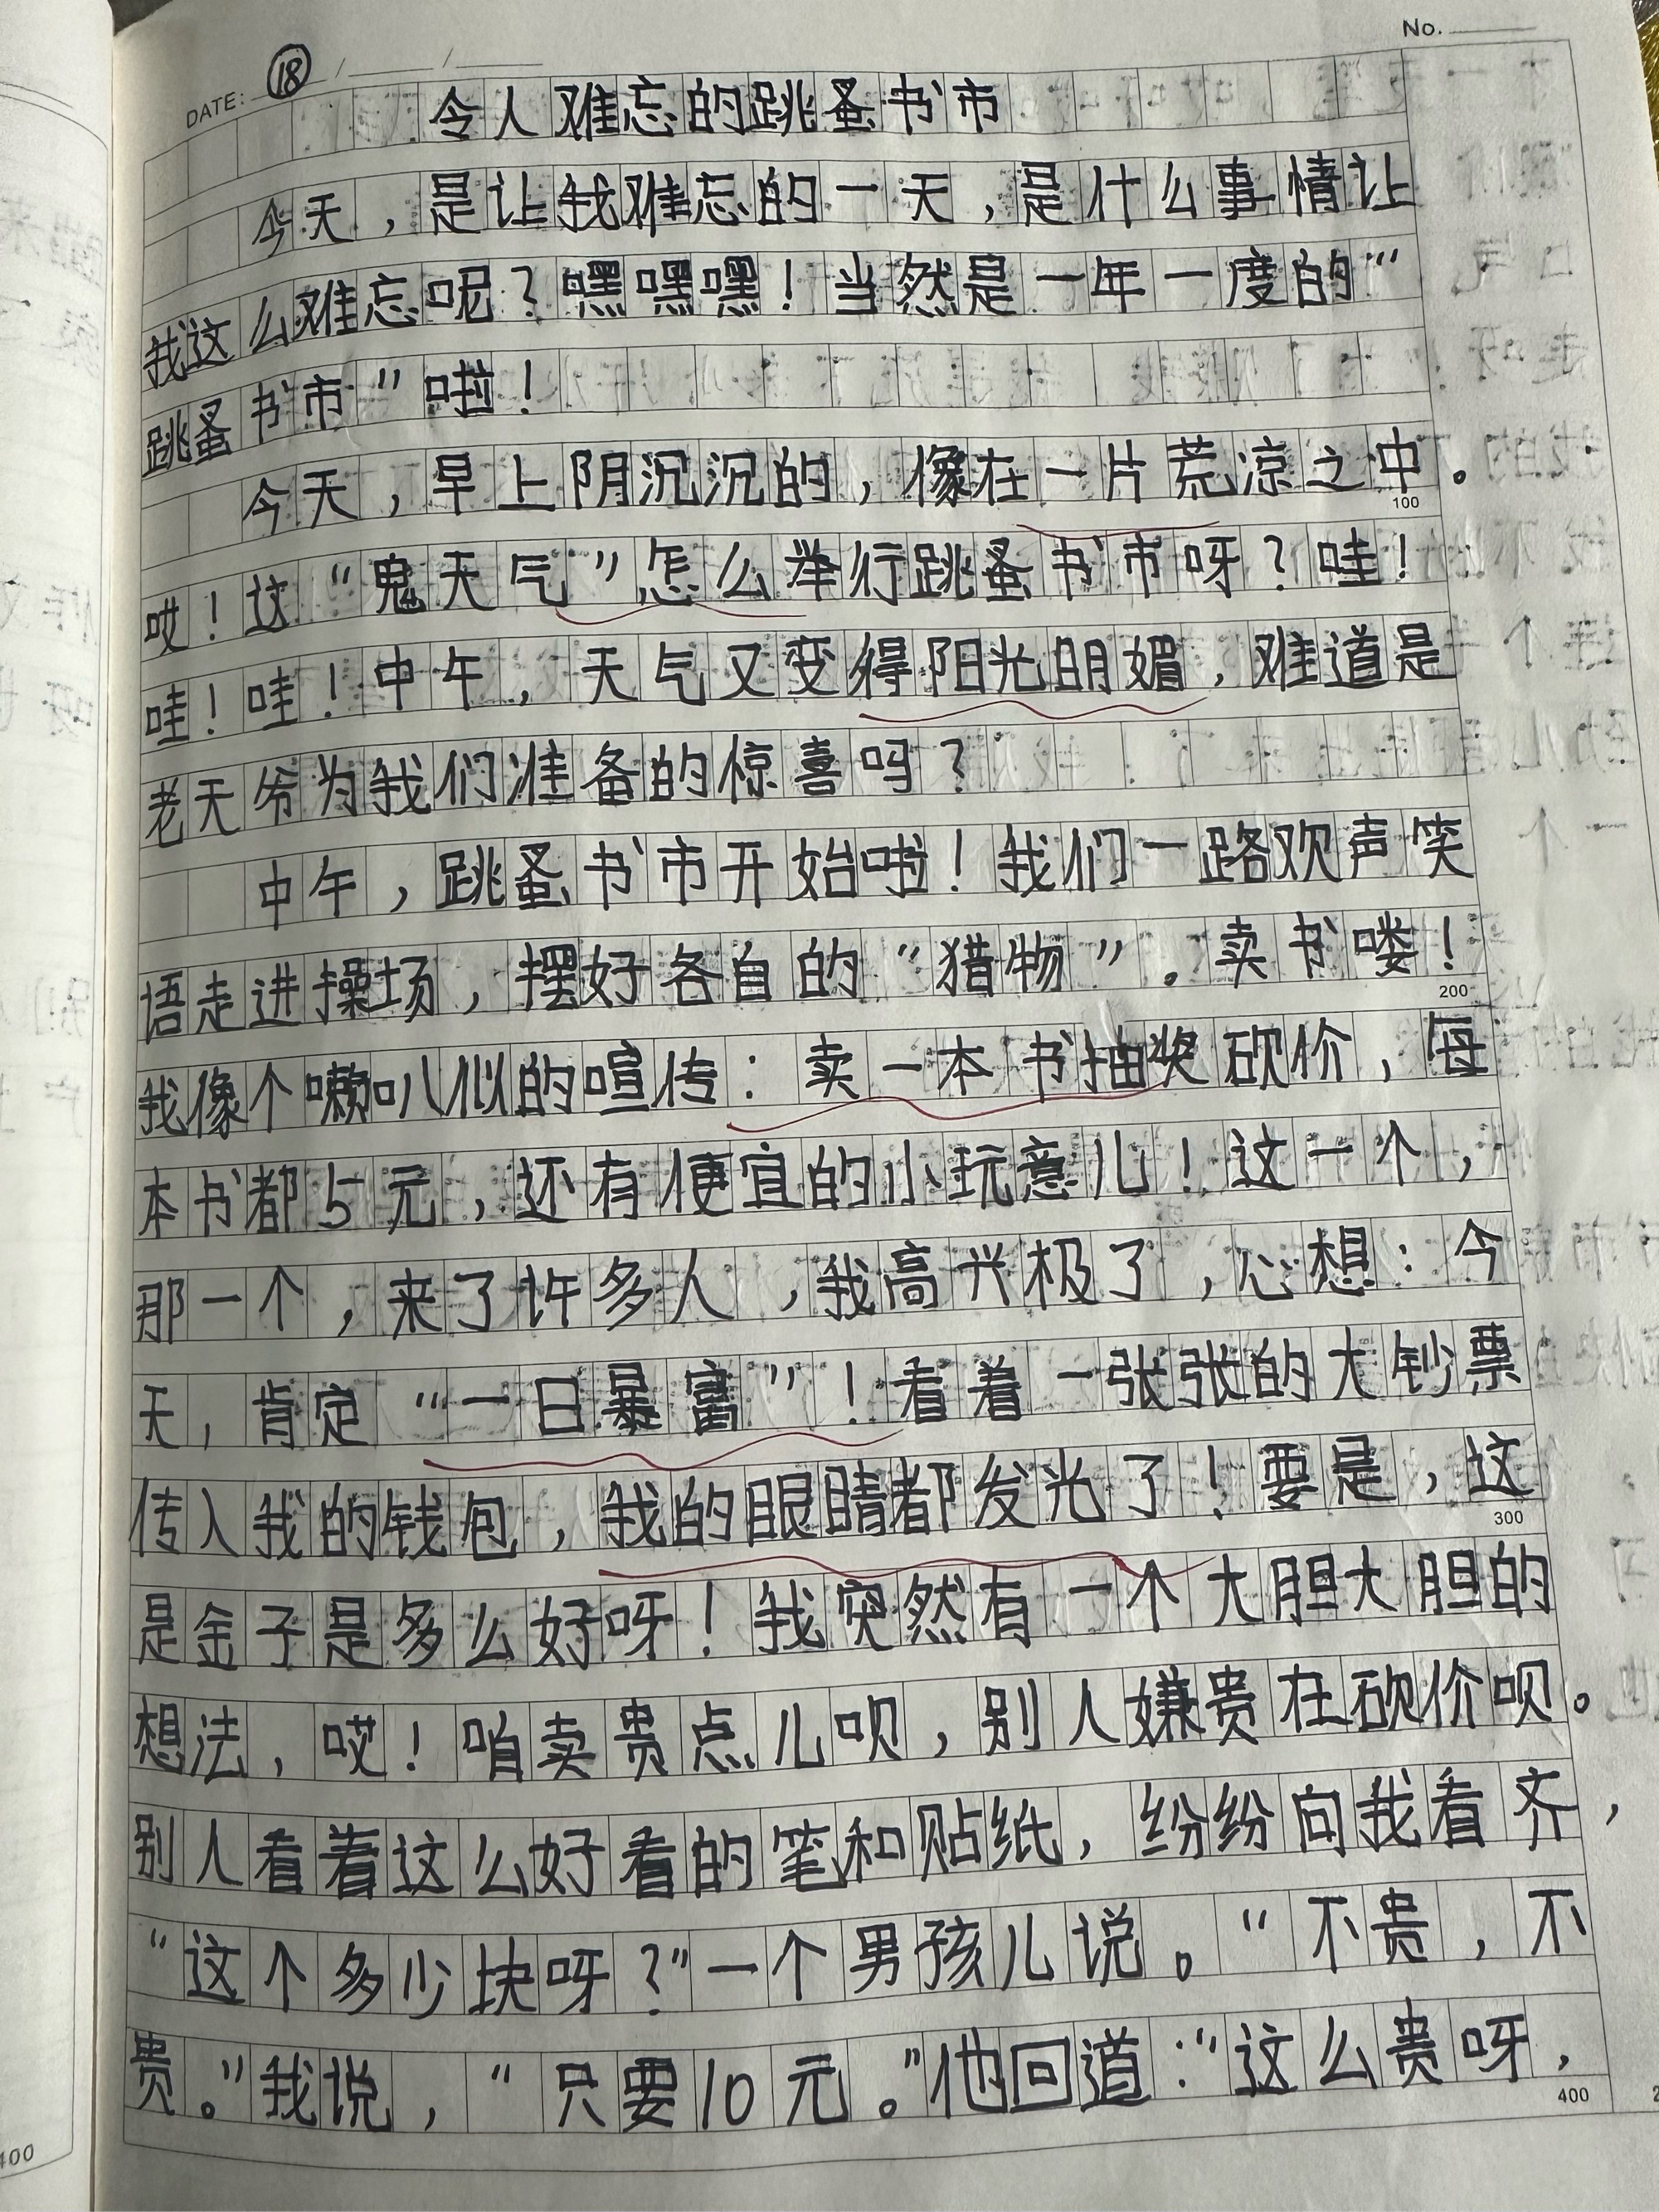 No.
DATE: ⑱ / /
令人难忘的跳蚤书市
今天，是让我难忘的一天，是什么事情让
我这么难忘呢？嘿嘿嘿！当然是一年一度的“
跳蚤书市”啦！
今天，早上阴沉沉的，像在一片荒凉之中。
100
哎！这“鬼天气”怎么举行跳蚤书市呀？哇！
哇！哇！中午，天气又变得阳光明媚，难道是
老天爷为我们准备的惊喜吗？
中午，跳蚤书市开始啦！我们一路欢声笑
语走进操场，摆好各自的“猎物”。卖书喽！
200
我像个嗽叭似的喧传：卖一本书抽奖砍价，每
本书都5元，还有便宜的小玩意儿！这一个，
那一个，来了许多人，我高兴极了，心想：今
天，肯定“一日暴富”！看着一张张的大钞票
传入我的钱包，我的眼睛都发光了！要是，这
300
是金子是多么好呀！我突然有一个大胆大胆的
想法，哎！咱卖贵点儿呗，别人嫌贵在砍价呗。
别人看着这么好看的笔和贴纸，纷纷向我看齐，
“这个多少块呀？”一个男孩儿说。“不贵，不
贵。”我说，“只要10元。”他回道：“这么贵呀，
400